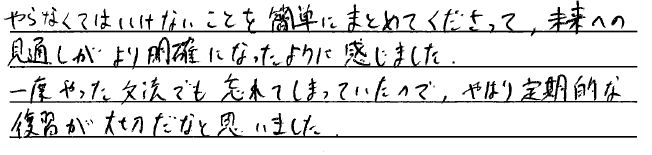 やらなくてはいけないことを簡単にまとめてくださって、未来への
見通しがより明確になったように感じました.
一度やった文法でも忘れてしまっていたので、やはり定期的な
復習が大切だなと思いました.